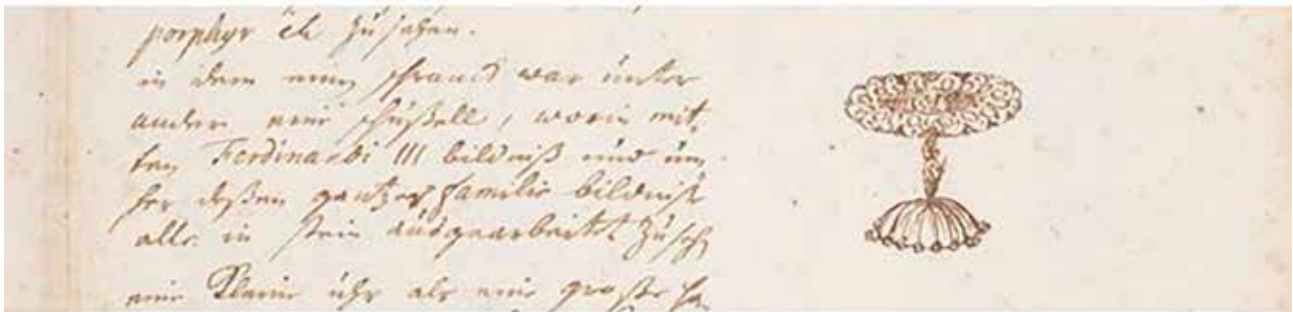 porphyr etc zu sehen.
in dem einen schranck war unter
andern eine schüßell, worin mit
ten Ferdinandi III bildniß und um
her deßen gantzer familie bildniße
alle in stein ausgearbeitet zu sehen
eine kleine uhr als eine große ha